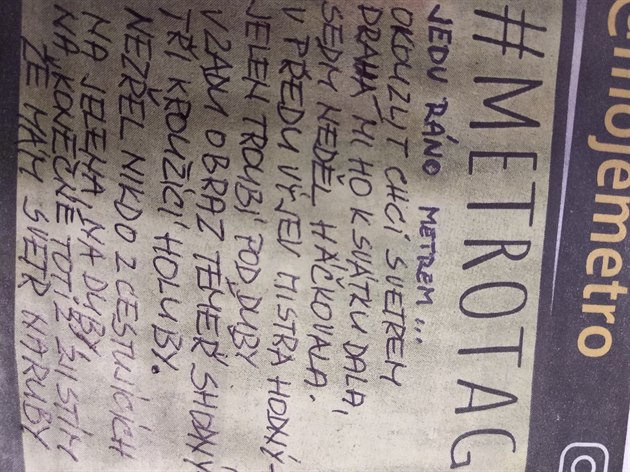 mojemetro
#METROTAG
JEDU RÁNO METREM ...
OKOUZLIT CHCI SVETREM
DRAHÁ MI HO K SVÁTKU DALA,
SEDM NEDĚL HÁČKOVALA.
V PŘEDU VÝJEV MISTRA HODNÝ -
JELEN TROUBÍ POD DUBY
VZADU OBRAZ TÉMĚŘ SHODNÝ
TŘI KROUŽÍCÍ HOLUBY.
NEZŘEL NIKDO Z CESTUJÍCÍCH
NA JELENA, NA DUBY
NA KONEČNÉ TOTIŽ ZJISTÍM
ŽE MÁM SVETR NARUBY